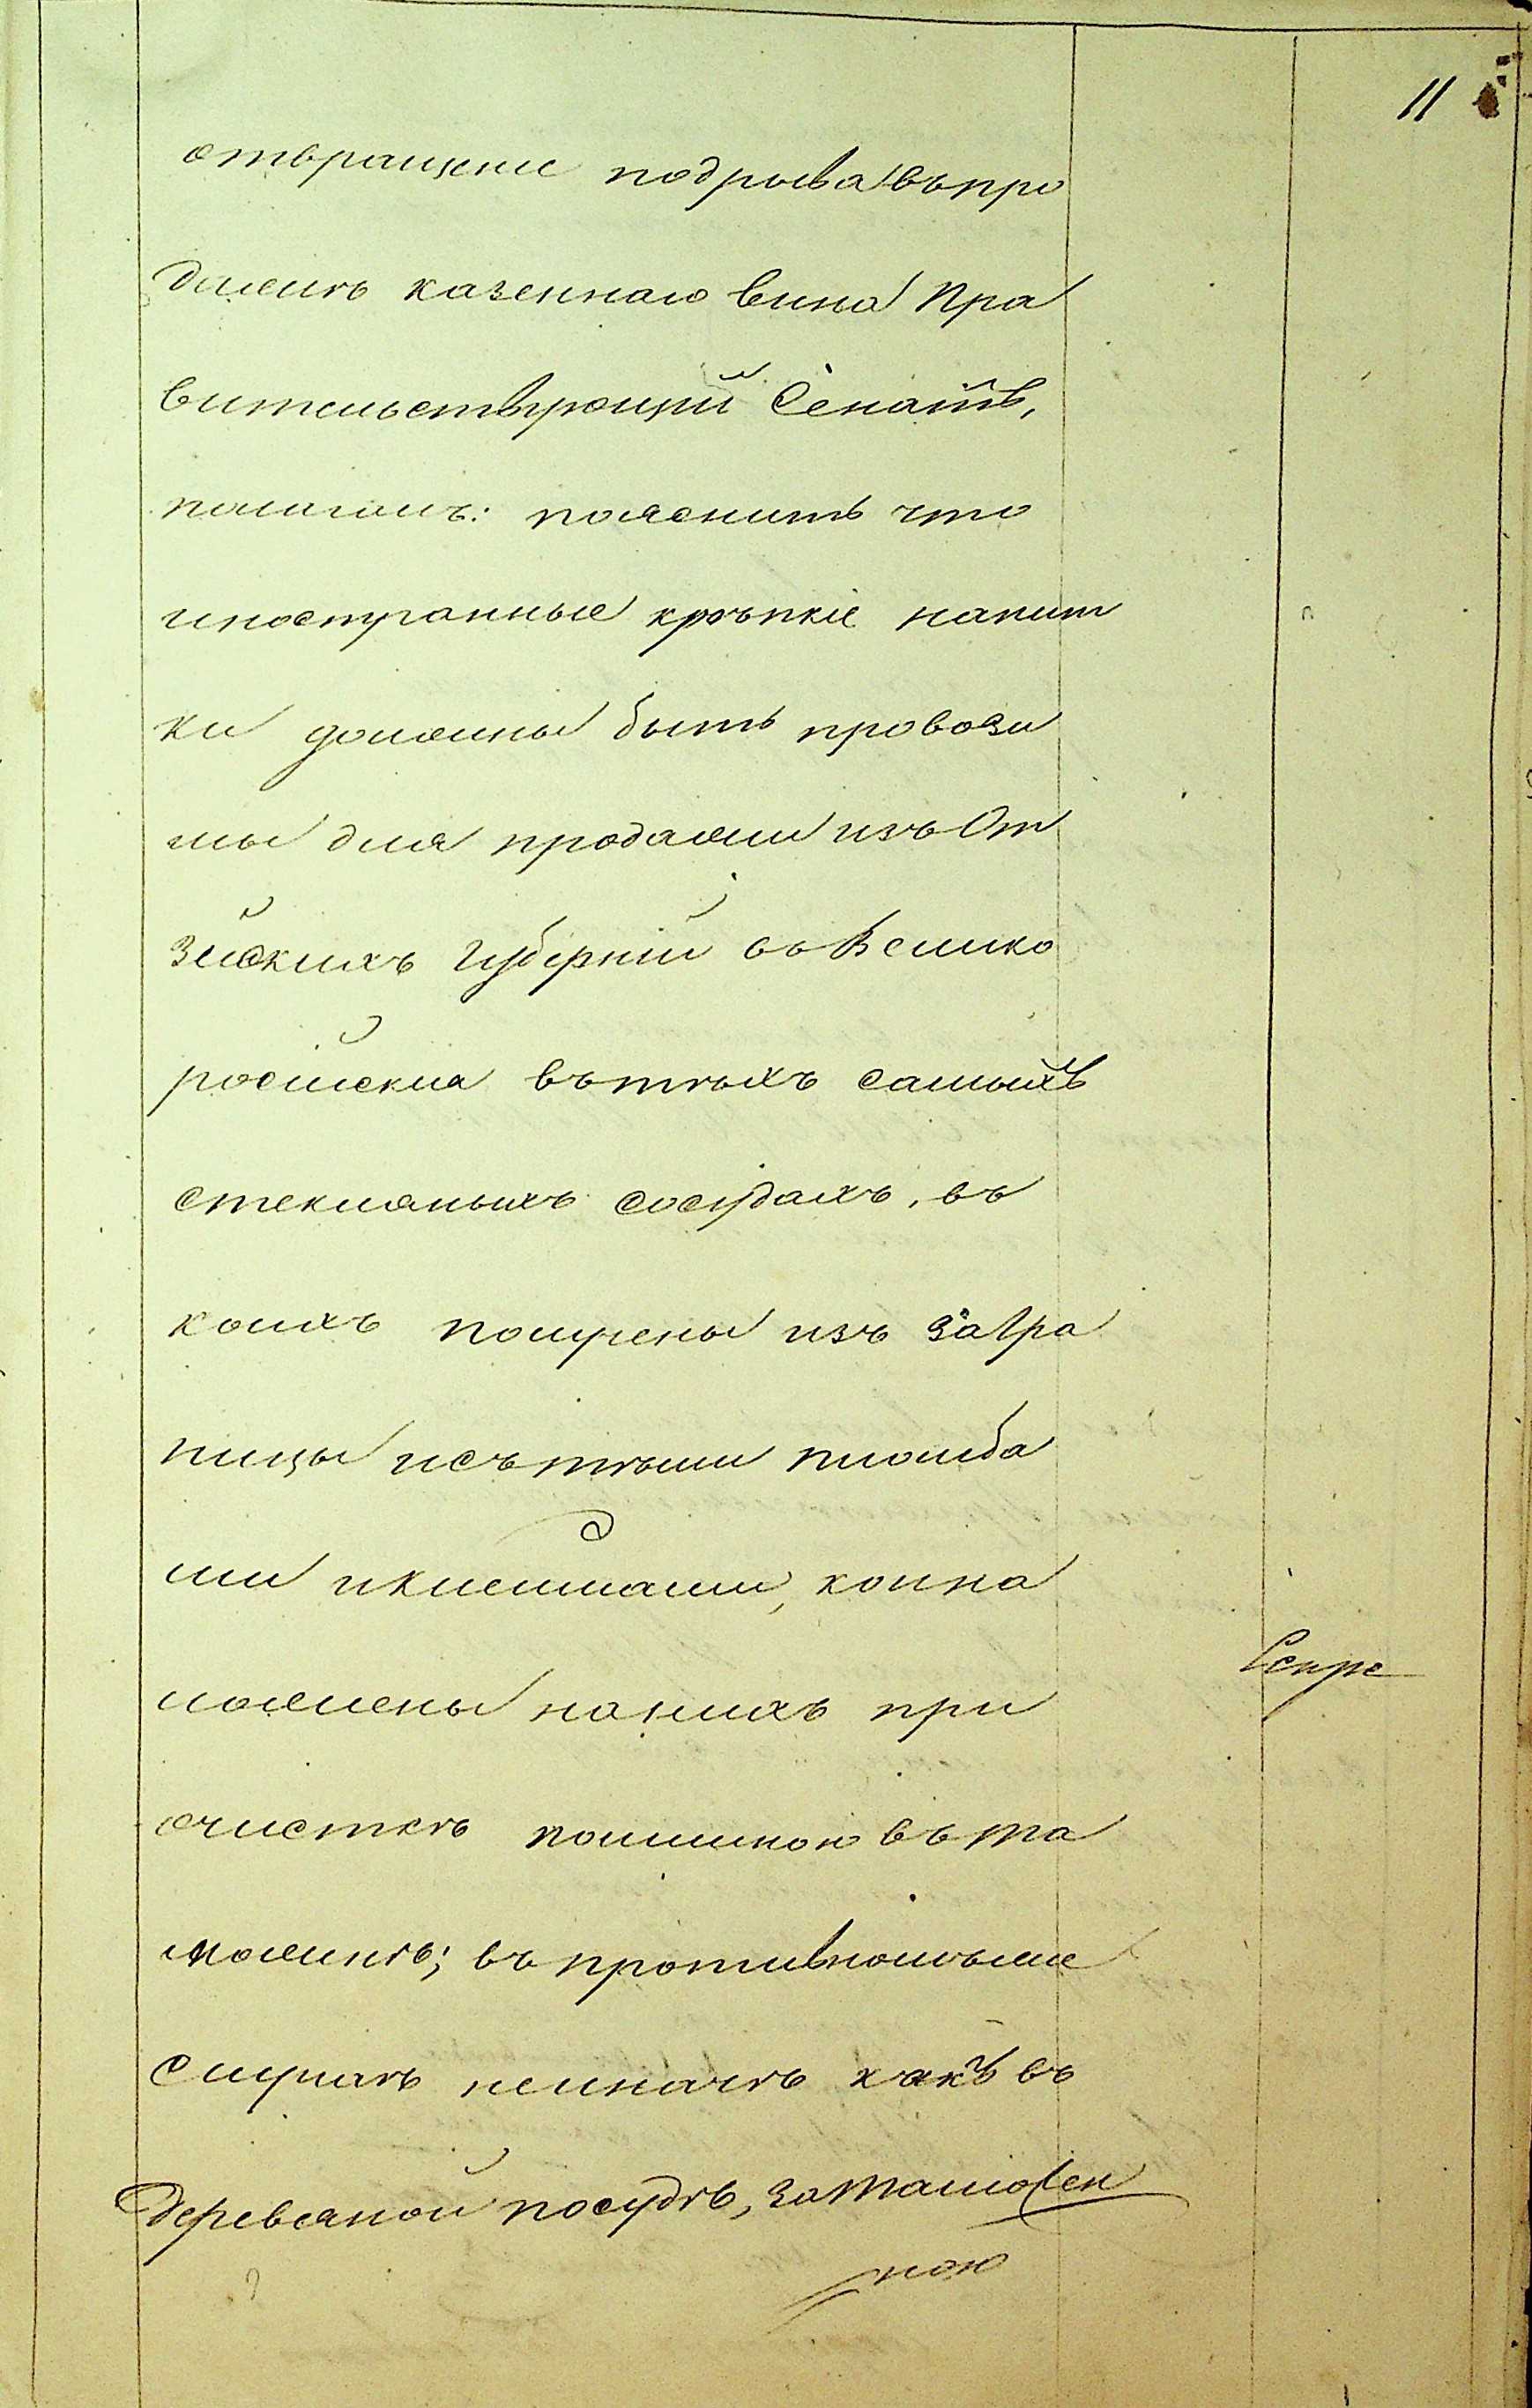 11
отвращение подрыва въ про
дажѣ казеннаго вина Пра
вительствующiй Сенатъ,
полагалъ: пояснить что
иностранные крѣпкiе напит
ки должны быть провози
мы для продажи изъ От
зейскихъ Губернiй въ Велико
росiйскiя въ тѣхъ самыхъ
стекляныхъ сосудахъ, въ
коихъ получены изъ за гра
ницы и съ тѣми пломба
ми и клеймами, кои на
ложены на нихъ при
очисткѣ пошлиною въ та
можнѣ; въ противномъ же
случаѣ не иначѣ какъ въ
деревяной посудѣ, за таможен
ною
Секре